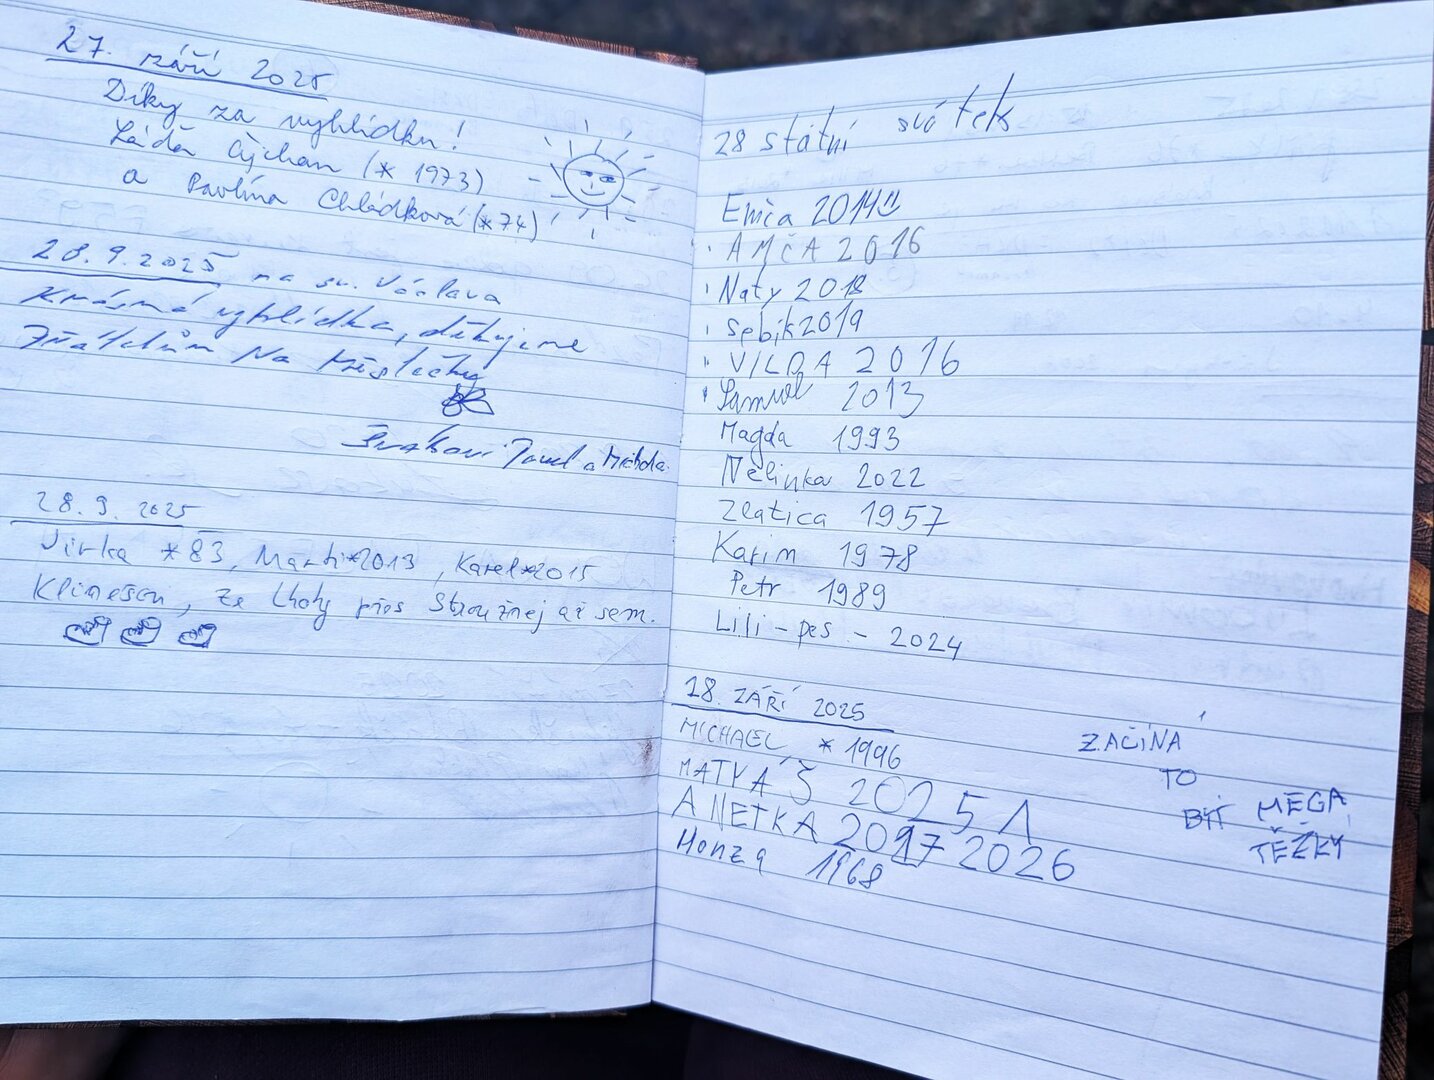 27. září 2025
Díky za vyhlídku!
Láďa Cychan (* 1973)
a Pavlína Chládková (* 74)
28.9.2025 na sv. Václava
Krásná vyhlídka, děkujeme
Na
Pavel a
28. 9. 2025
Jirka *83, Marti*2013, Karel*2015
Klimešovi, ze Lhoty přes Stroužnej až sem.
28 státní svátek
Emča 2014
AMČA 2016
Naty 2018
Sebik 2019
VILDA 2016
Samuel 2013
Magda 1993
Nelinka 2022
Zlatica 1957
Karim 1978
Petr 1989
Lili - pes - 2024
28. ZÁŘÍ 2025
MICHAEL * 1996
MATYÁŠ 2025 1
ANETKA 2017 2026
Honza 1968
ZAČÍNÁ
TO
BÝT MEGA
TĚŽKÝ